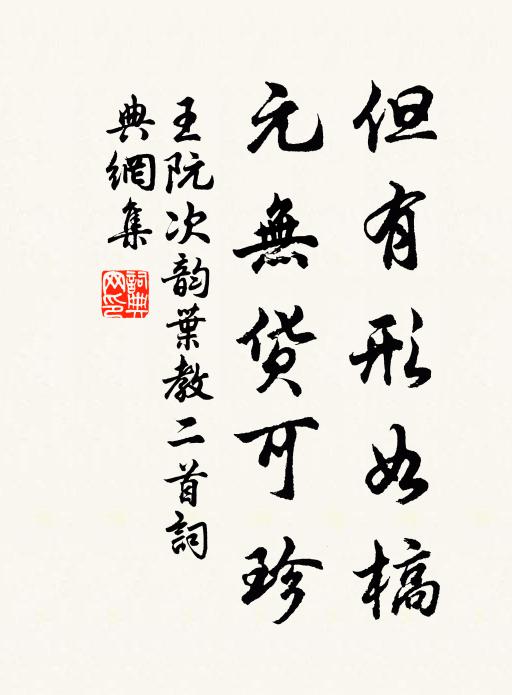 但有形如槁
元無貨可珍
王阮次韵葉教二首詞
典網集
詞典網印